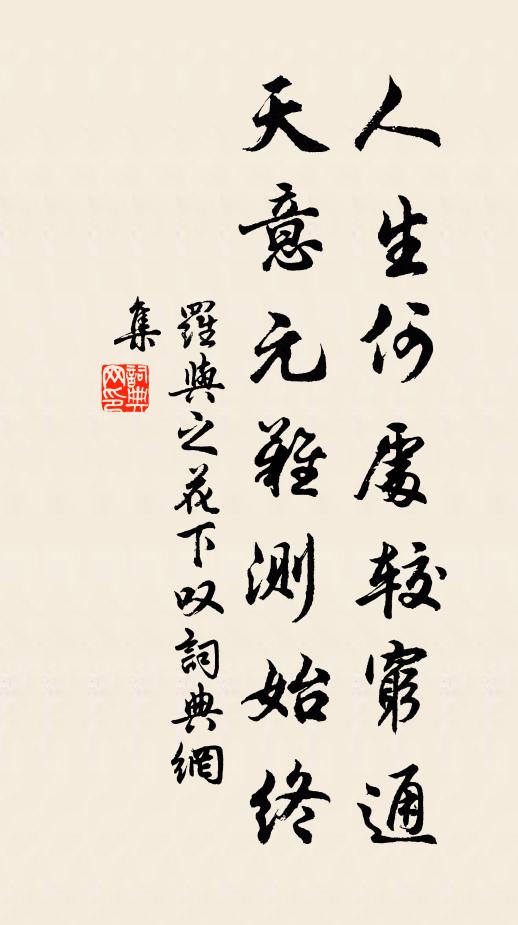 人生何處較窮通
天意元難測始終
羅與之花下叹詞典網
集
詞典
网印